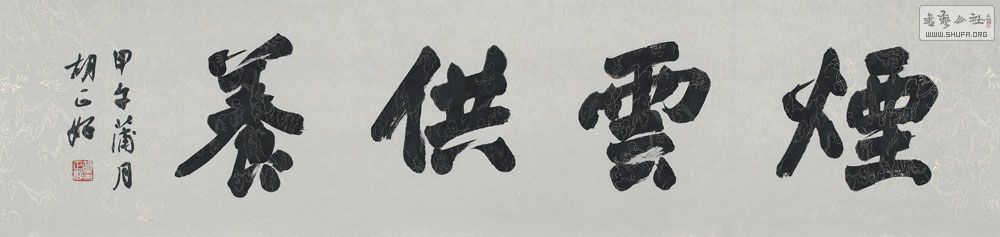 煙雲供養
甲午蒲月
胡正好
书艺公社
WWW.SHUFA.ORG